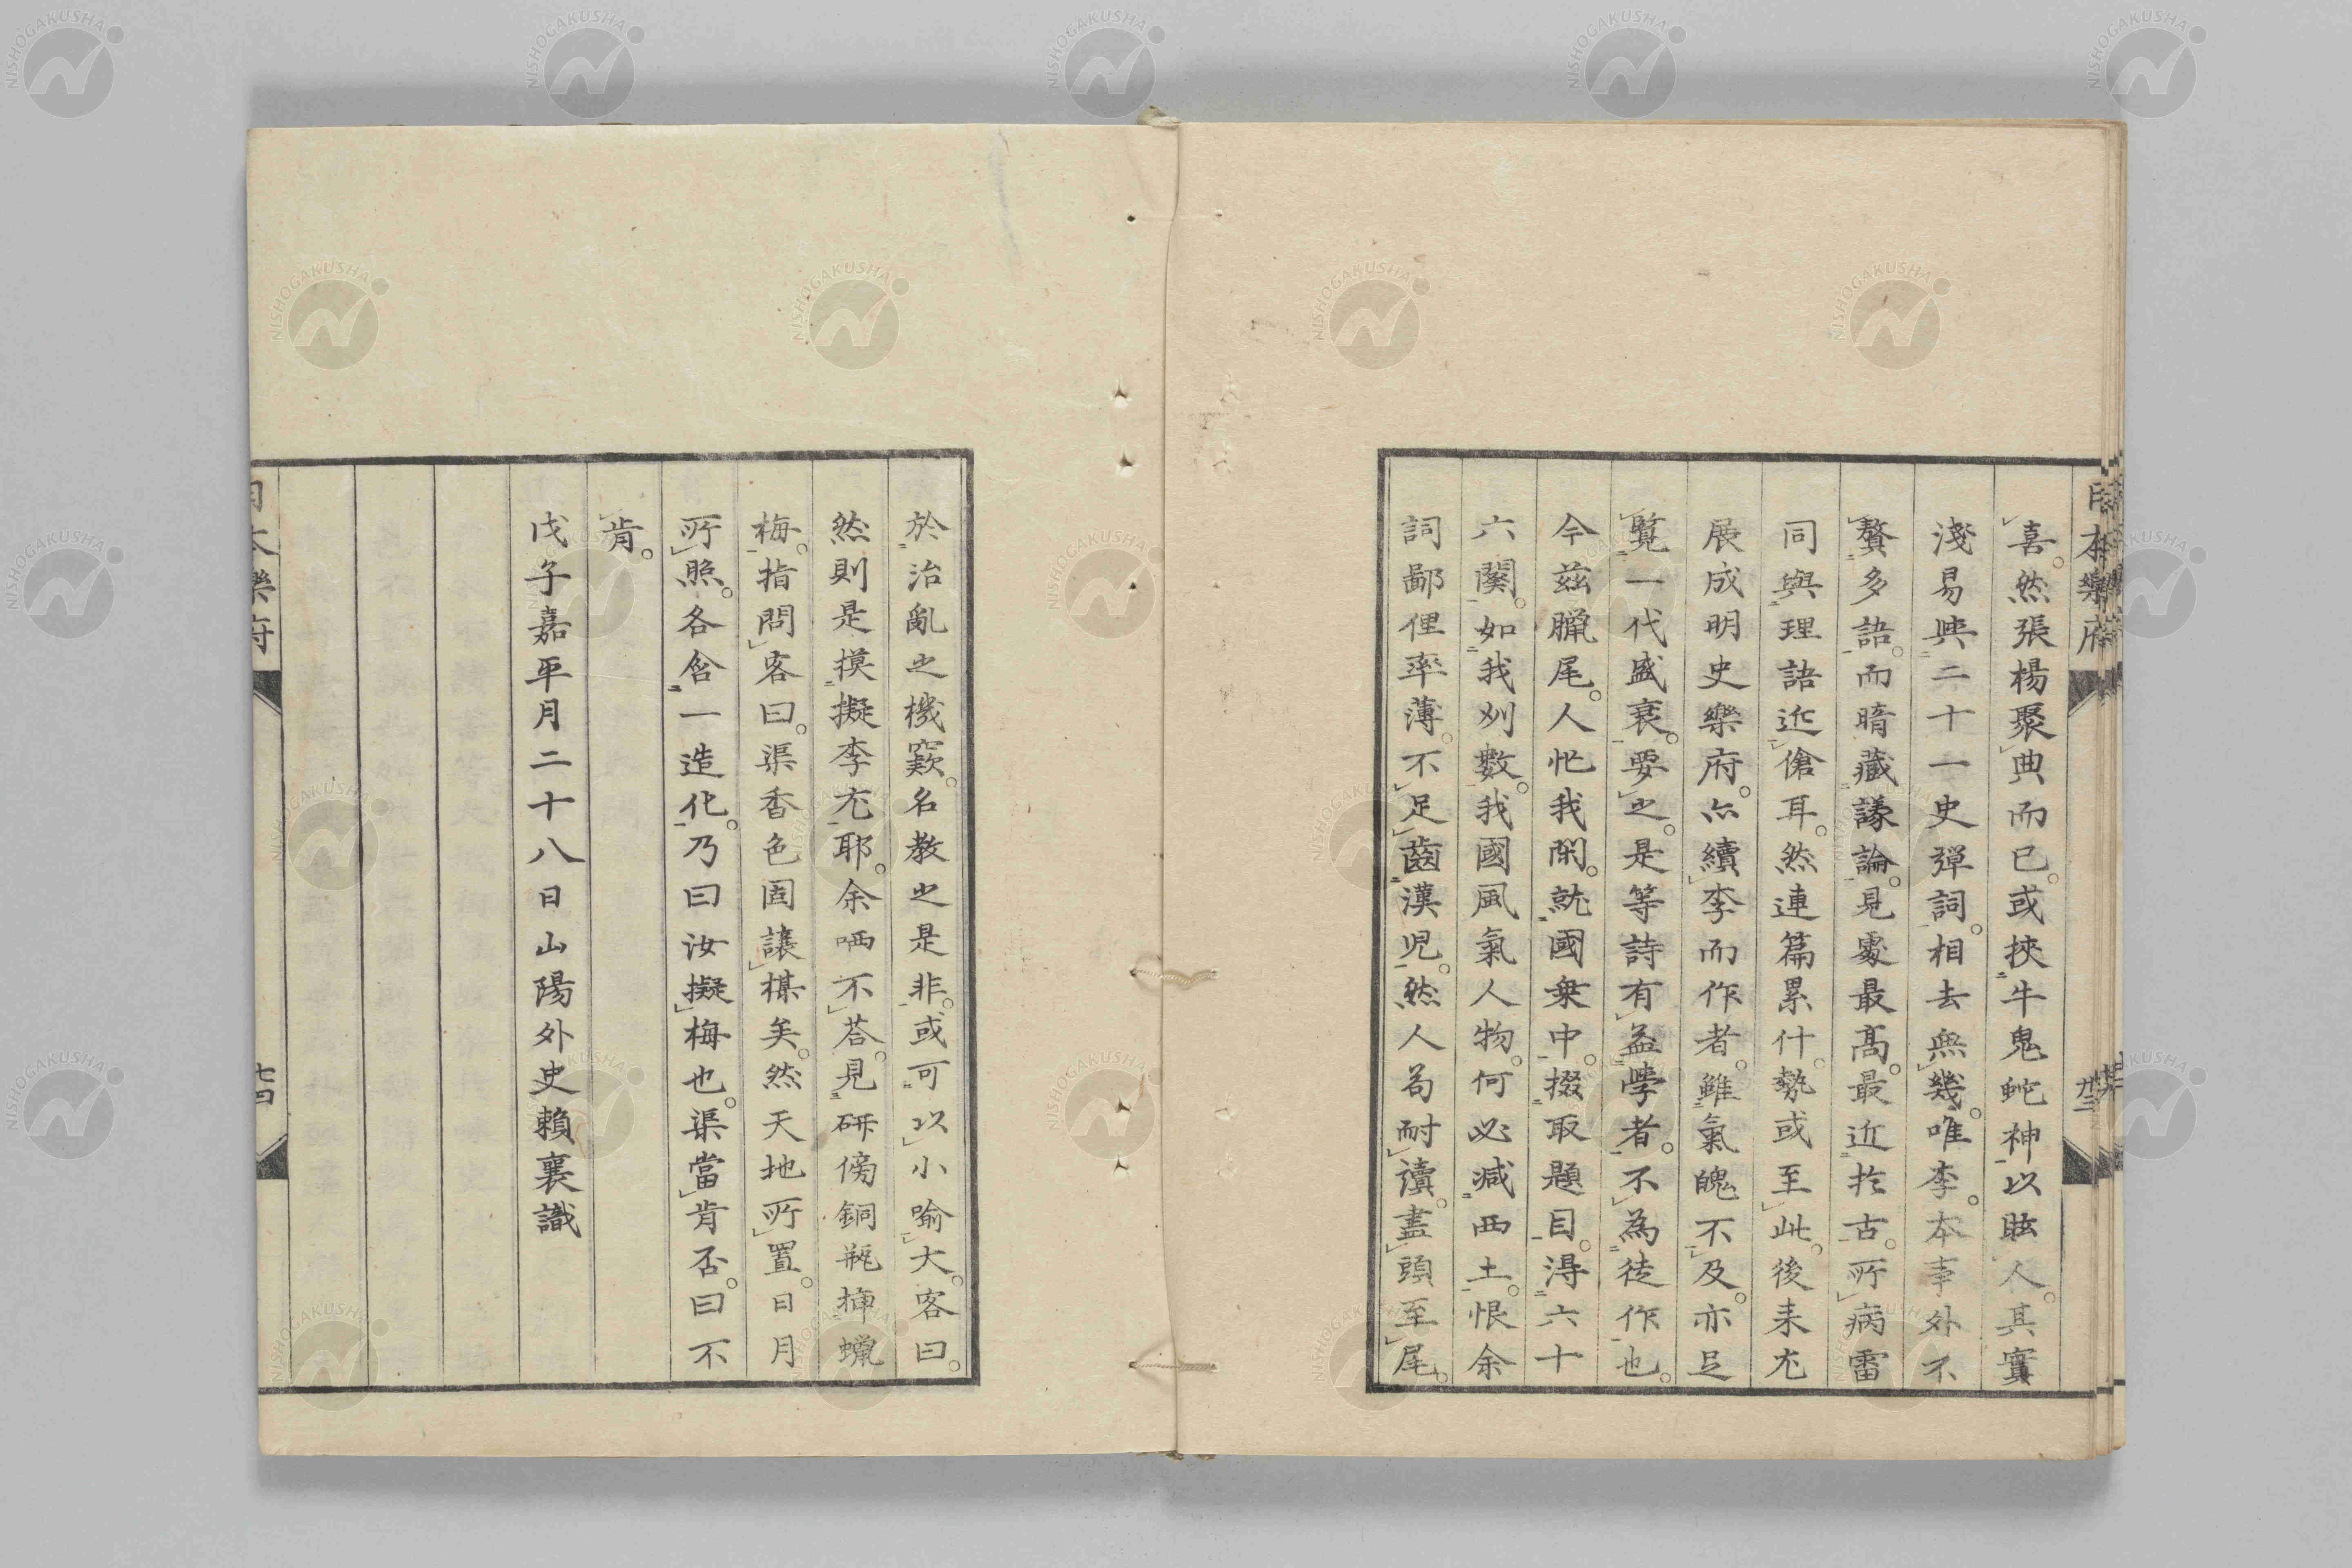 喜。然張楊聚典而已。或挾牛鬼蛇神以眩人。其實
淺易與二十一史彈詞。相去無幾。唯李。本事外不
贅多語。而暗藏議論。見處最高。最近於古。所病雷
同與理語近傖耳。然連篇累什。勢或至此。後来尤
展成明史樂府。亦續李而作者。雖氣魄不及。亦足
覧一代盛衰。要之。是等詩有益學者。不為徒作也。
今茲臘尾。人忙我閑。就國乗中。掇取題目。得六十
六闋。如我刈數。我國風氣人物。何必減西土。恨余
詞鄙俚率薄。不足齒漢児。然人苟耐讀。盡頭至尾。
日本樂府
廿三
於治亂之機竅。名教之是非。或可以小喻大。客曰。
然則是摸擬李尤耶。余哂不荅。見研傍銅瓶揷蠟
梅。指問客曰。渠香色固讓某矣。然天地所置。日月
所照。各含一造化。乃曰汝擬梅也。渠當肯否。曰不
肯。
戊子嘉平月二十八日山陽外史頼襄識
日本樂府
廿四
NISHOGAKUSHA